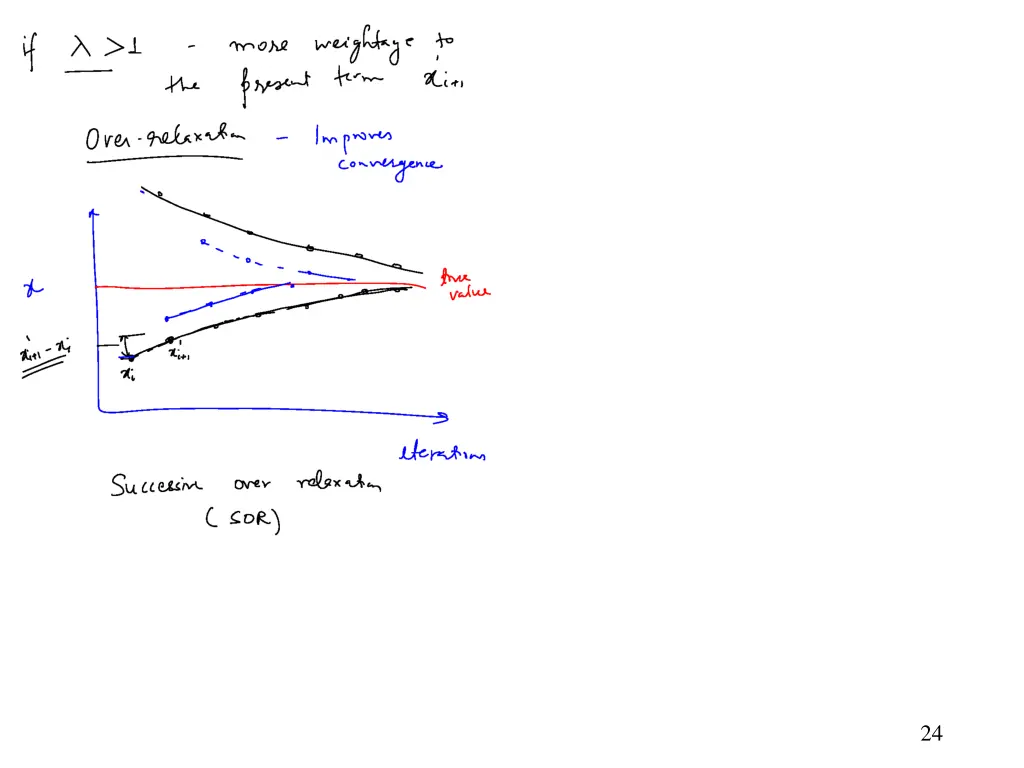 if λ >1 - more weightage to
the present term x'i+1
Over-relaxation - Improves
convergence
x
true
value
x'i+1 - xi
x'i+1
xi
iterations
Successive over relaxation
(SOR)
24